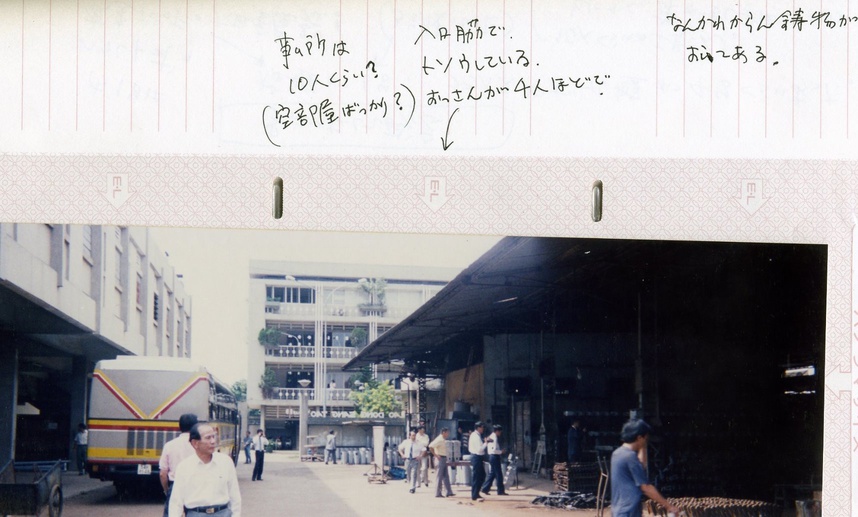 事ム所は
10人くらい?
(空部屋ばっかり?)
入口筋で、
トソウしている。
おっさんが4人ほどで
なんかわからん鋳物が
おいてある。
EL
EL
EL
LAO DONG SANG TAO